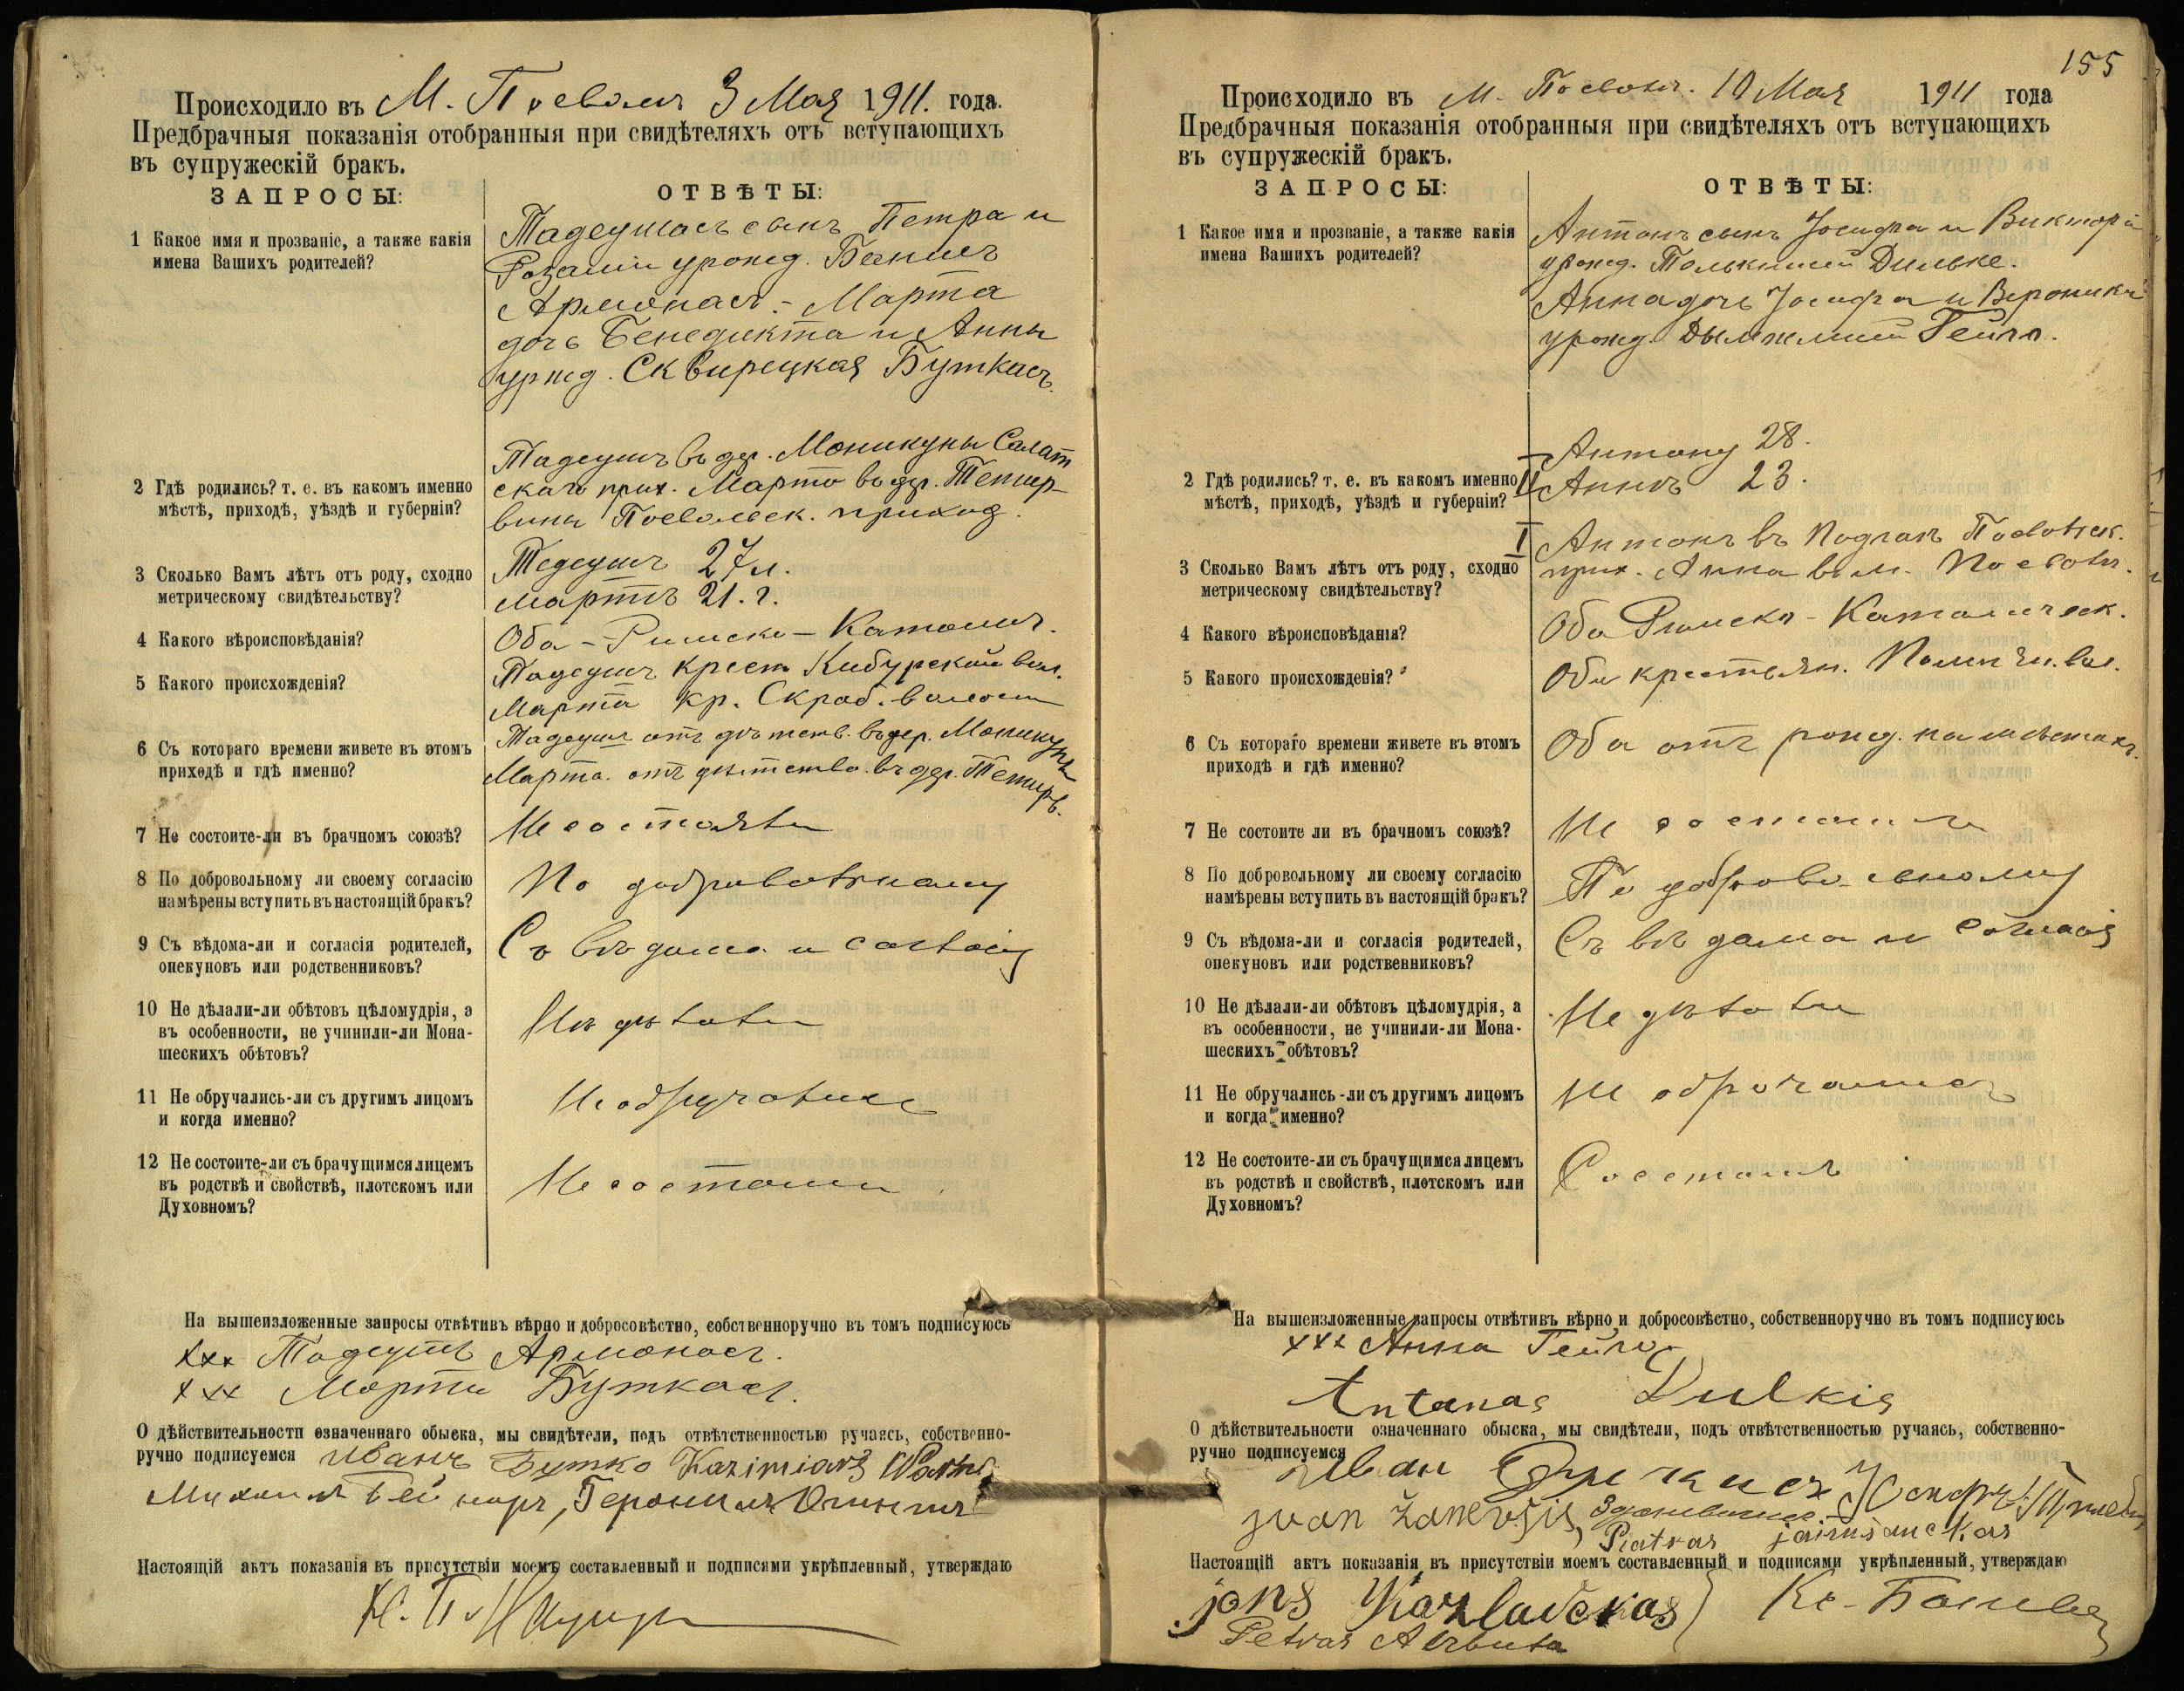 Происходило въ М. Посволѣ 3 Мая 1911. года.
Предбрачныя показанія отобранныя при свидѣтеляхъ отъ вступающихъ
въ супружескій бракъ.
ЗАПРОСЫ:
ОТВѢТЫ:
1 Какое имя и прозваніе, а также какія
имена Вашихъ родителей?
Тадеушъ сынъ Петра и
Розаліи урожд.
Армонасъ - Марта
дочь Бенедикта и Анны
урожд. Сквирецкая Буткасъ.
2 Гдѣ родились? т. е. въ какомъ именно
мѣстѣ, приходѣ, уѣздѣ и губерніи?
Тадеушъ въ дер. Моникуны Салат
скаго прих. Марта въ дер.
Посвольск. приход.
3 Сколько Вамъ лѣтъ отъ роду, сходно
метрическому свидѣтельству?
Тадеушъ 27 л.
Мартѣ 21. г.
4 Какого вѣроисповѣданія?
Оба - Римско - Католич.
5 Какого происхожденія?
Тадеушъ крест. вол.
Марта кр. Скраб. волости
6 Съ котораго времени живете въ этомъ
приходѣ и гдѣ именно?
Тадеушъ отъ дѣтств. въ дер. Моникуны
Марта отъ дѣтства въ дер.
7 Не состоите-ли въ брачномъ союзѣ?
Не состояли
8 По добровольному ли своему согласію
намѣрены вступить въ настоящій бракъ?
По добровольному
9 Съ вѣдома-ли и согласія родителей,
опекуновъ или родственниковъ?
Съ вѣдома и согласія
10 Не дѣлали-ли обѣтовъ цѣломудрія, а
въ особенности, не учинили-ли Мона-
шескихъ обѣтовъ?
Не дѣлали
11 Не обручались-ли съ другимъ лицомъ
и когда именно?
Не обручались
12 Не состоите-ли съ брачущимся лицемъ
въ родствѣ и свойствѣ, плотскомъ или
Духовномъ?
Не состоимъ
На вышеизложенные запросы отвѣтивъ вѣрно и добросовѣстно, собственноручно въ томъ подписуюсь
xxx Тадеушъ Армонасъ.
xxx Марта Буткасъ.
О дѣйствительности означеннаго обыска, мы свидѣтели, подъ отвѣтственностью ручаясь, собственно-
ручно подписуемся Иванъ Бутко Kazimiarz
Михаилъ Бейнаръ,
Настоящій актъ показанія въ присутствіи моемъ составленный и подписями укрѣпленный, утверждаю
155
Происходило въ М. Посволѣ. 10 Мая 1911 года
Предбрачныя показанія отобранныя при свидѣтеляхъ отъ вступающихъ
въ супружескій бракъ.
ЗАПРОСЫ:
ОТВѢТЫ:
1 Какое имя и прозваніе, а также какія
имена Вашихъ родителей?
Антонъ сынъ Іосифа и Викторіи
урожд. Дильке.
Анна дочь Іосифа и Вероники
урожд.
Антону 28.
2 Гдѣ родились? т. е. въ какомъ именно
мѣстѣ, приходѣ, уѣздѣ и губерніи?
II Аннѣ 23.
3 Сколько Вамъ лѣтъ отъ роду, сходно
метрическому свидѣтельству?
I Антонъ въ Посвольск.
прих. Анна въ м. Посвол.
4 Какого вѣроисповѣданія?
Оба Римско - Католическ.
5 Какого происхожденія?
Оба крестьян. вол.
6 Съ котораго времени живете въ этомъ
приходѣ и гдѣ именно?
Оба отъ рожд. на мѣстахъ.
7 Не состоите ли въ брачномъ союзѣ?
Не состояли
8 По добровольному ли своему согласію
намѣрены вступить въ настоящій бракъ?
По добровольному
9 Съ вѣдома-ли и согласія родителей,
опекуновъ или родственниковъ?
Съ вѣдома и согласія
10 Не дѣлали-ли обѣтовъ цѣломудрія, а
въ особенности, не учинили-ли Мона-
шескихъ обѣтовъ?
Не дѣлали
11 Не обручались-ли съ другимъ лицомъ
и когда именно?
Не обручались
12 Не состоите-ли съ брачущимся лицемъ
въ родствѣ и свойствѣ, плотскомъ или
Духовномъ?
На вышеизложенные запросы отвѣтивъ вѣрно и добросовѣстно, собственноручно въ томъ подписуюсь
xxx Анна
Antanas Dulkis
О дѣйствительности означеннаго обыска, мы свидѣтели, подъ отвѣтственностью ручаясь, собственно-
ручно подписуемся
Иван
Piatras
Настоящій актъ показанія въ присутствіи моемъ составленный и подписями укрѣпленный, утверждаю
jons Kozlauckas
Petras